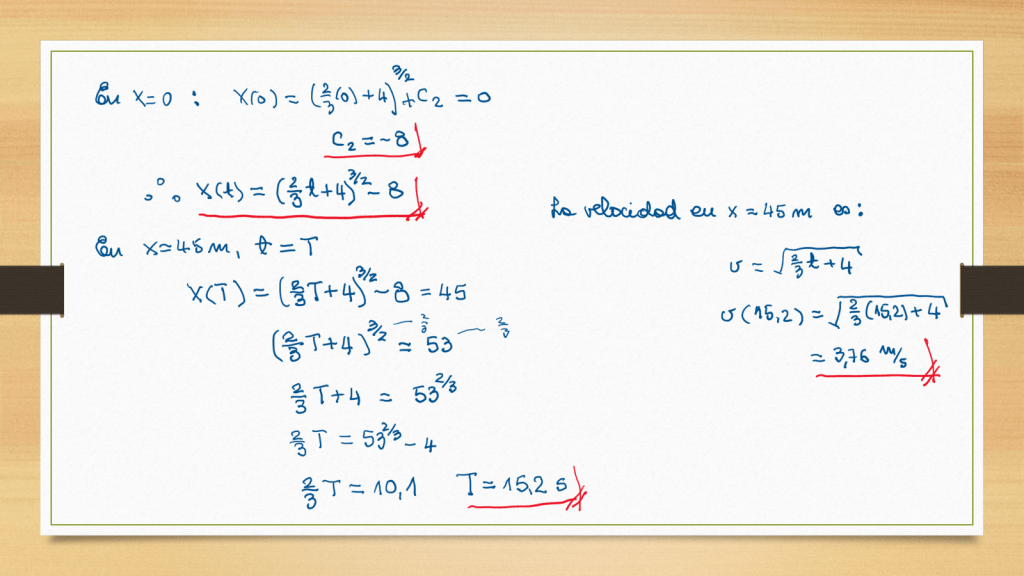 En x=0 : x(0) = (2/3(0)+4)^3/2 + C2 = 0
C2 = -8
∴ x(t) = (2/3 t+4)^3/2 - 8
En x=45 m, t = T
x(T) = (2/3 T+4)^3/2 - 8 = 45
(2/3 T+4)^3/2 — 2/3 = 53 — 2/3
2/3 T+4 = 53^2/3
2/3 T = 53^2/3 - 4
2/3 T = 10,1 T = 15,2 s
La velocidad en x = 45 m es:
v = √(2/3 t+4)
v(15,2) = √(2/3 (15,2)+4)
= 3,76 m/s